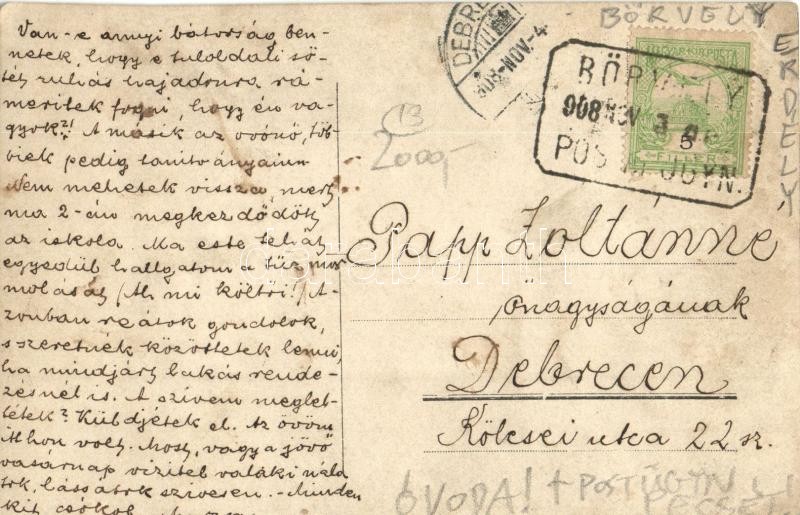 Van-e annyi bátorság ben-
netek, hogy e tuloldali sö-
tét ruhás hajadonra rá-
meritek fogni, hogy én va-
gyok?! A másik az óvónő, töb-
biek pedig tanitványaim
Nem mehetek vissza, mert
ma 2-án megkezdődött
az iskola. Ma este tehát
egyedül hallgatom a tűz mor
molását (Ah mi költői!) A-
zonban reátok gondolok,
s szeretnék közöttetek lenni,
ha mindjárt lakás rende-
zésnél is. A szivem meglel-
tétek? Küldjétek el. Az övöm
itthon volt. Most, vagy a jövő
vasárnap vizitel valaki nála
tok, lássátok szivesen. - Minden
kit csókol
DEBRE
908-NOV.-4
BÖRVELY
ERDÉLY!
MAGYAR KIR. POSTA
5
FILLÉR
BÖRVELY
908 NOV 3
POSTAI ÜGYN.
13
2000,-
Papp Zoltánné
őnagyságának
Debrecen
Kölcsei utca 22 sz.
ÓVODA! + POSTÜGYN
PECSÉT!